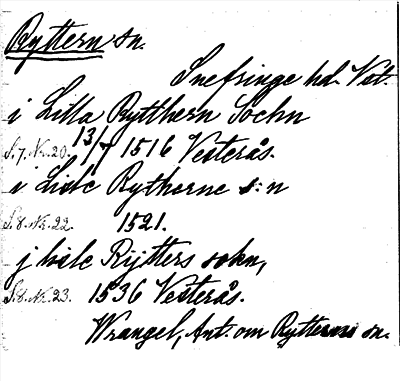 Ryttern sn.
Snefringe hd. Vst.
i Lilla Rytthern Sochn
S. 7. Nr. 20. 13/7 1516 Vesterås.
i Lisle Rytherne s:n
S. 8. Nr. 22. 1521.
j lisle Rijtters sokn,
S. 8. Nr. 23. 1536 Vesterås.
Wrangel, Ant. om Rytterns sn.